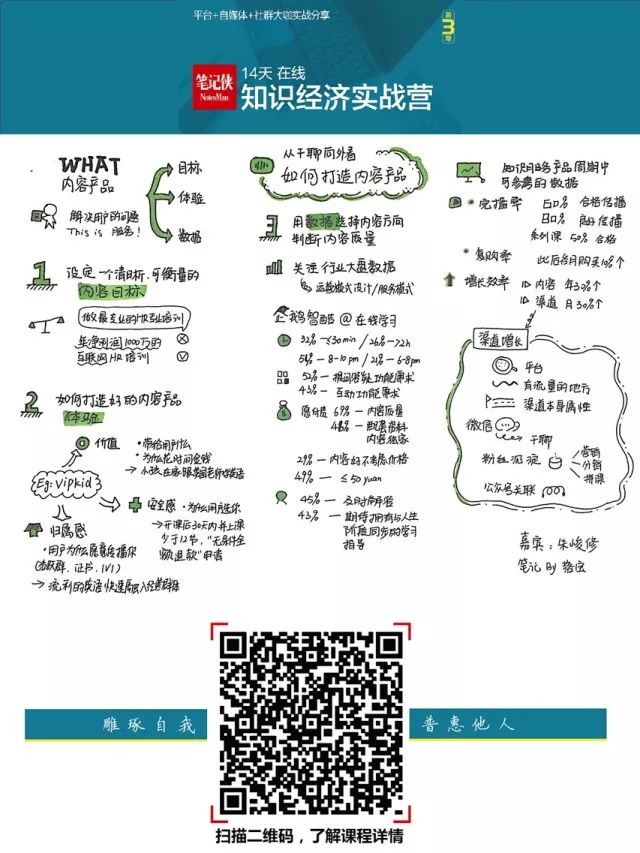 平台+自媒体+社群大咖实战分享
第3期
笔记侠
NotesMan
14天 在线
知识经济实战营
WHAT
内容产品
目标
体验
数据
解决用户的问题
This is 服务!
1 设定一个清晰、可衡量的
内容目标
做最专业的HR专业培训
年净利润1000万的
互联网HR培训
2 如何打造好的内容产品
体验
价值
• 带给用户什么
• 为什么花时间金钱
Eg: Vipkid
安全感
• 为什么用选你
→ 开课后30天内并上课
少于12节,"无条件全
额退款"申请
归属感
• 用户为什么愿意传播你
从干聊向外看
如何打造内容产品
3 用数据选择内容方向
判断内容质量
关注行业大盘数据
↳ 运营模式设计/服务模式
企鹅智酷@在线学习
32% — ≤30min / 26% — >2h
51% — 8-10pm / 21% — 6-8pm
43% — 互动功能需求
愿付费 67% — 内容质量
内容独家
29% — 内容好不考虑价格
49% — ≤50 yuan
45% — 及时解答
43% — 期待拥有与人生
阶段同步的学习
指导
知识服务产品周期中
可参考的数据
完播率
60% 合格传播
80% 良好传播
系列课 50% 合格
复购率
增长效率
▷ 内容 年30%↑
▷ 渠道 月30%↑
渠道增长
平台
有流量的地方
渠道本身属性
微信
干聊
粉丝沉淀
营销
分销
拼课
公众号关联
嘉宾:朱峻修
笔记 By
雕琢自我
普惠他人
扫描二维码,了解课程详情